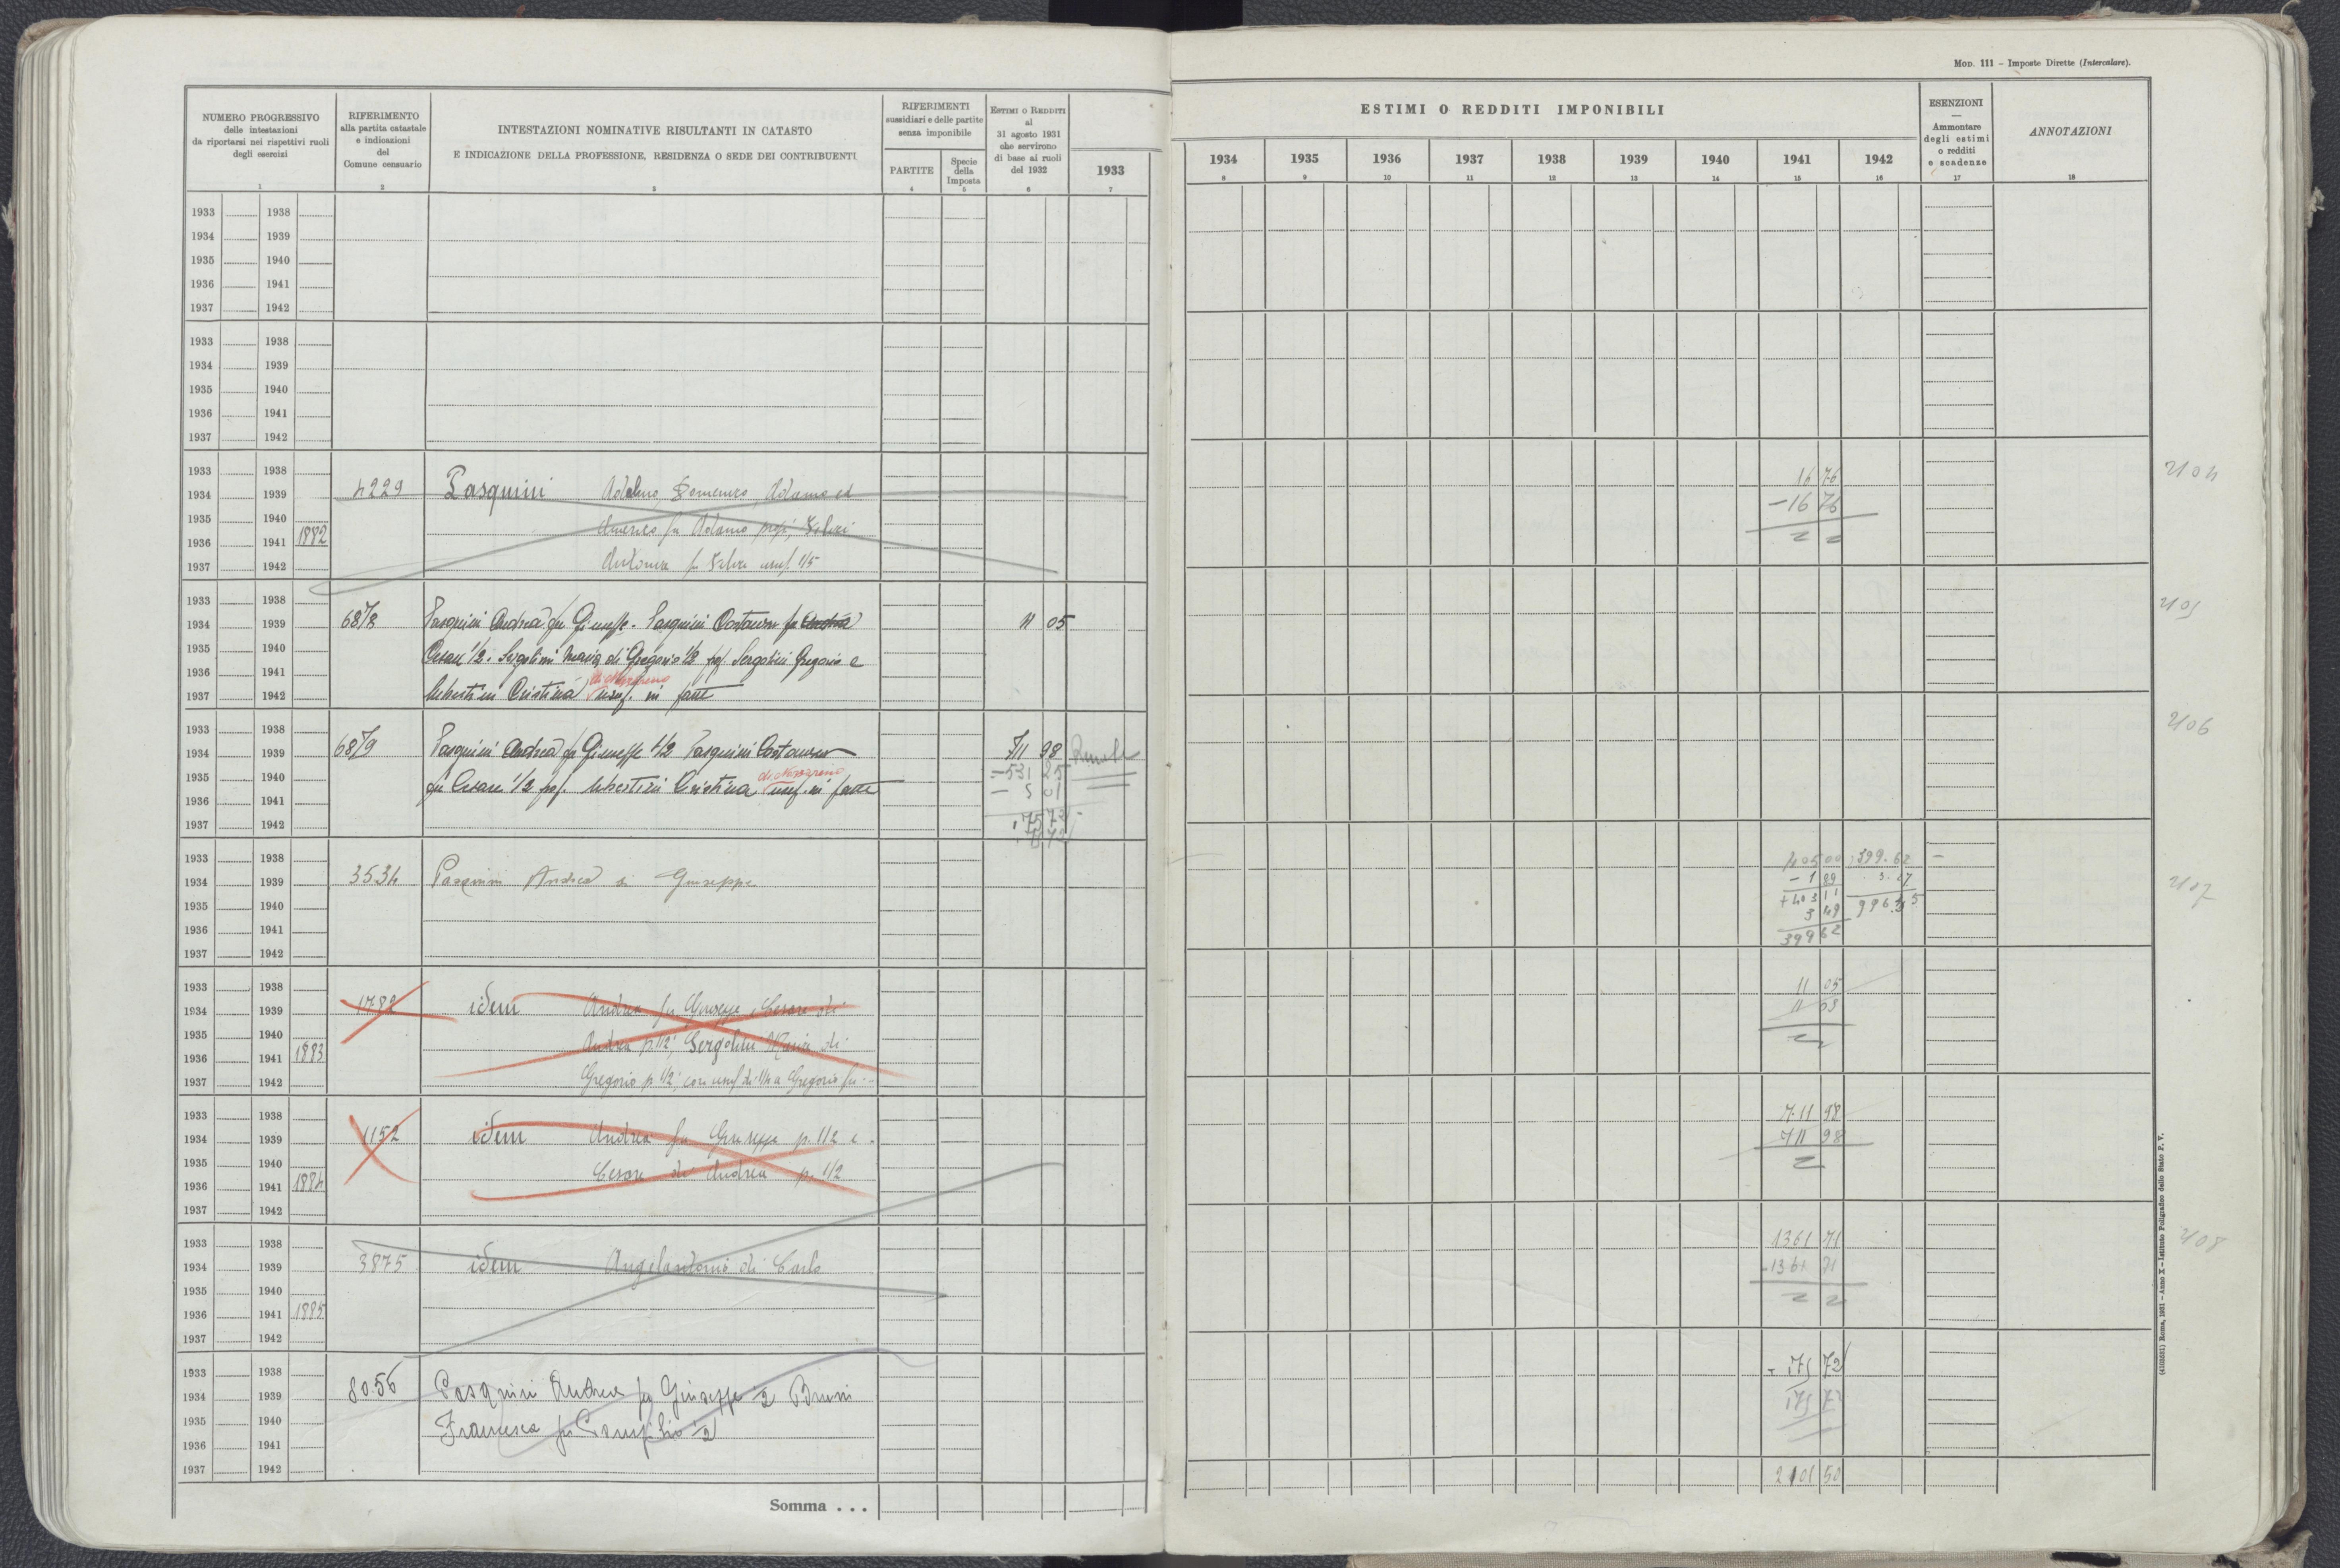 MOD. 111 - Imposte Dirette (Intercalare).
NUMERO PROGRESSIVO
delle intestazioni
da riportarsi nei rispettivi ruoli
degli esercizi
RIFERIMENTO
alla partita catastale
e indicazioni
del
Comune censuario
INTESTAZIONI NOMINATIVE RISULTANTI IN CATASTO
E INDICAZIONE DELLA PROFESSIONE, RESIDENZA O SEDE DEI CONTRIBUENTI
RIFERIMENTI
sussidiari e delle partite
senza imponibile
PARTITE
Specie
della
Imposta
ESTIMI O REDDITI
al
31 agosto 1931
che servirono
di base ai ruoli
del 1932
1933
ESTIMI O REDDITI IMPONIBILI
1934 1935 1936 1937 1938 1939 1940 1941 1942
ESENZIONI
—
Ammontare
degli estimi
o redditi
e scadenze
ANNOTAZIONI
1 2 3 4 5 6 7 8 9 10 11 12 13 14 15 16 17 18
1933 1938
1934 1939
1935 1940
1936 1941
1937 1942
1933 1938
1934 1939
1935 1940
1936 1941
1937 1942
1933 1938 16 76
1934 1939 4229 Pasquini Adelmo, Domenico, Adamo ed -16 76
1935 1940 Americo fu Adamo prop, Silvi
1936 1941 1882
1937 1942 Antonia fu Silvi usuf. 1/5
2104
1933 1938
1934 1939 6878 Pasquini Andrea fu Giuseppe. Pasquini fu Andrea 11 05
1935 1940 Cesare 1/2. Sergolini Maria di Gregorio 1/2 prop. Sergolini Gregorio e
1936 1941 di Nazzareno
1937 1942 Cristina usuf. in parte
2105
1933 1938
1934 1939 6879 Pasquini Andrea fu Giuseppe 1/2 Pasquini 711 98
1935 1940 di Nazzareno -531 25
1936 1941 fu Cesare 1/2 prop. Cristina usuf. in parte - 5 01
1937 1942 175 72
2106
1933 1938 405 00 399.62
1934 1939 3534 Pasquini Andrea di Giuseppe - 1 89
1935 1940 403 11
1936 1941 3 49
1937 1942 399 62
2107
1933 1938 11 05
1934 1939 1782 idem Andrea fu Giuseppe, Cesare di 11 05
1935 1940 Andrea p. 1/2, Sergolini Maria di
1936 1941 1883
1937 1942 Gregorio p. 1/2, con usuf di 1/4 a Gregorio fu
1933 1938 711 98
1934 1939 1152 idem Andrea fu Giuseppe p. 1/2 e 711 98
1935 1940 Cesare di Andrea p. 1/2
1936 1941 1884
1937 1942
1933 1938 1361 71
1934 1939 3875 idem Angelantonio di Carlo -1361 71
1935 1940
1936 1941 1885
1937 1942
2108
1933 1938 175 72
1934 1939 8056 Pasquini Andrea fu Giuseppe 1/2 Bruni 175 72
1935 1940 Francesca fu Pamfilio 1/2
1936 1941
1937 1942
2101 50
Somma . . .
(4103581) Roma, 1931 - Anno X - Istituto Poligrafico dello Stato P. V.